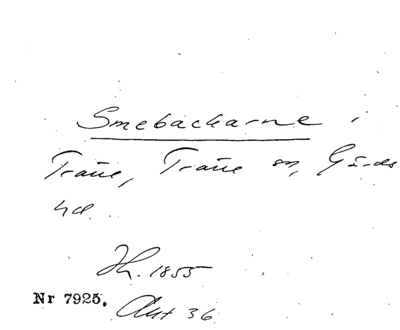 Smebackarne i
Träne, Träne sn, Gärds
hd.
Jh. 1855
Nr 7925. Akt 36